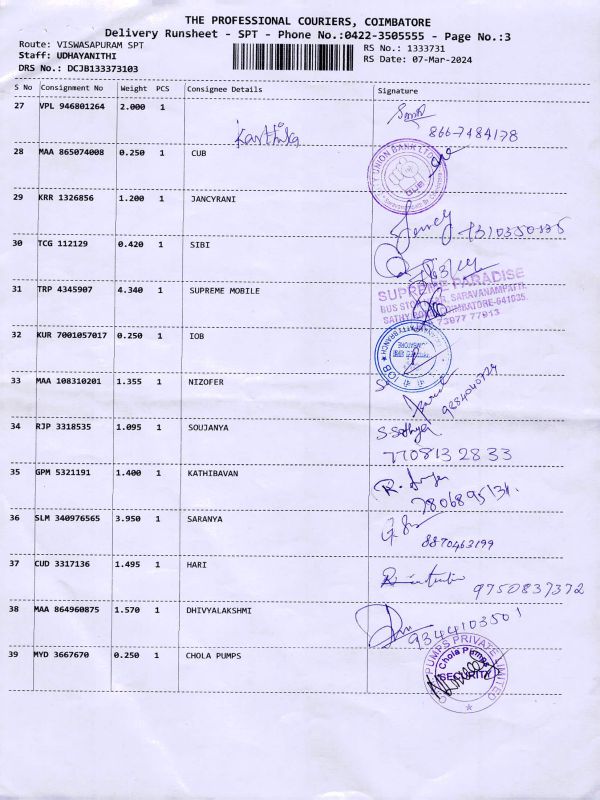 THE PROFESSIONAL COURIERS, COIMBATORE
Delivery Runsheet - SPT - Phone No.:0422-3505555 - Page No.:3
Route: VISWASAPURAM SPT RS No.: 1333731
Staff: UDHAYANITHI RS Date: 07-Mar-2024
DRS No.: DCJB133373103
S No Consignment No Weight PCS Consignee Details Signature
27 VPL 946801264 2.000 1
Karthika 8667484178
28 MAA 865074008 0.250 1 CUB
UNION BANK LTD
29 KRR 1326856 1.200 1 JANCYRANI
Jency
30 TCG 112129 0.420 1 SIBI
31 TRP 4345907 4.340 1 SUPREME MOBILE
SUPREME PARADISE
BUS STOP, SARAVANAMPATTI,
SATHY ROAD, COIMBATORE-641035.
73977 77913
32 KUR 7001057017 0.250 1 IOB
IOB
33 MAA 108310201 1.355 1 NIZOFER
9284040729
34 RJP 3318535 1.095 1 SOUJANYA
S. Sathya
7708132833
35 GPM 5321191 1.400 1 KATHIBAVAN
R.
36 SLM 340976565 3.950 1 SARANYA
8870463199
37 CUD 3317136 1.495 1 HARI
9750837372
38 MAA 864960875 1.570 1 DHIVYALAKSHMI
9344103501
39 MYD 3667670 0.250 1 CHOLA PUMPS
PUMPS PRIVATE LIMITED
Chola Pumps
SECURITY